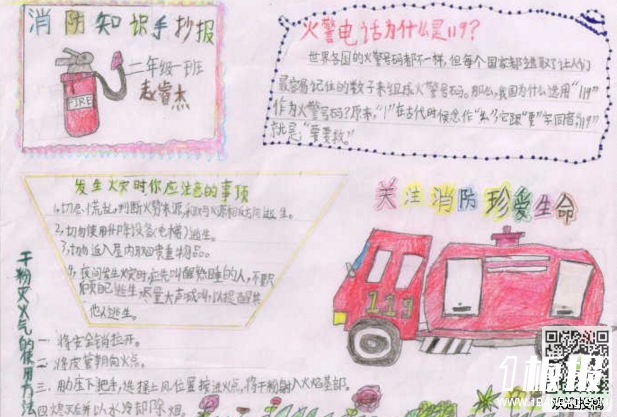 消防知识手抄报
二年级一班
赵睿杰
FIRE
火警电话为什么是119？
世界各国的火警号码都不一样，但每个国家都选取了让人们
最容易记住的数子来组成火警号码。那么，我国为什么选用“119”
作为火警号码？原来，“1”在古代时候念作“幺”，它跟“要”字同音，“119”
就是，“要要救。”
发生火灾时你应注意的事项
1，切忌慌乱，判断火势来源，
2，切勿使用升降设备（电梯）逃生。
3，切勿返入屋内取回贵重物品。
4，夜间发生火灾时，应先叫醒熟睡的人，不要只
顾自己逃生，尽量大声喊叫，以提醒其
他人逃生。
关注消防珍爱生命
119
干粉灭火气的使用方法
一、将安全销拉开。
二、将皮管朝向火点。
三、用力压下把手，选择上风位置接近火点，将干粉射入火焰基部。
四、熄灭后并以水冷却除烟。
1板报